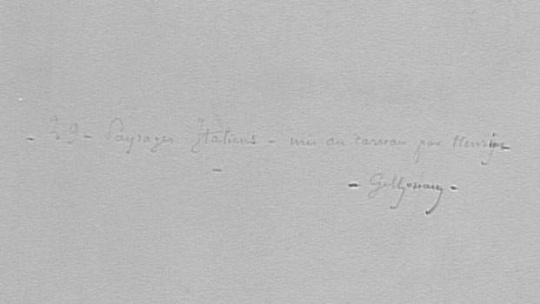 - 29 - Paysages Italiens - mis au carreau par Henri